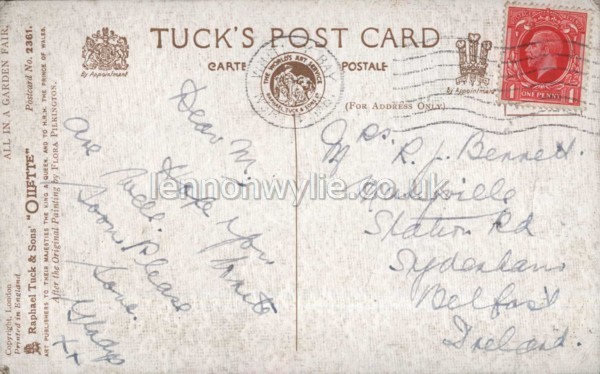 TUCK'S POST CARD
CARTE POSTALE
(FOR ADDRESS ONLY.)
By Appointment
By Appointment
THE WORLD'S ART SERVICE
RAPHAEL TUCK & SONS LTD
POSTAGE
ONE PENNY
ALL IN A GARDEN FAIR.
Postcard No. 2361.
Raphael Tuck & Sons' "OILETTE"
ART PUBLISHERS TO THEIR MAJESTIES THE KING & QUEEN, AND TO H.R.H. THE PRINCE OF WALES.
After the Original Painting by FLORA PILKINGTON.
Copyright, London
Printed in England
Dear M.
Hope you
are well.
Write
soon Please
Love
Gladys
xx
Mrs.
R. J. Bennett.
Station Rd
Sydenham
Belfast
Ireland.
lennonwylie.co.uk